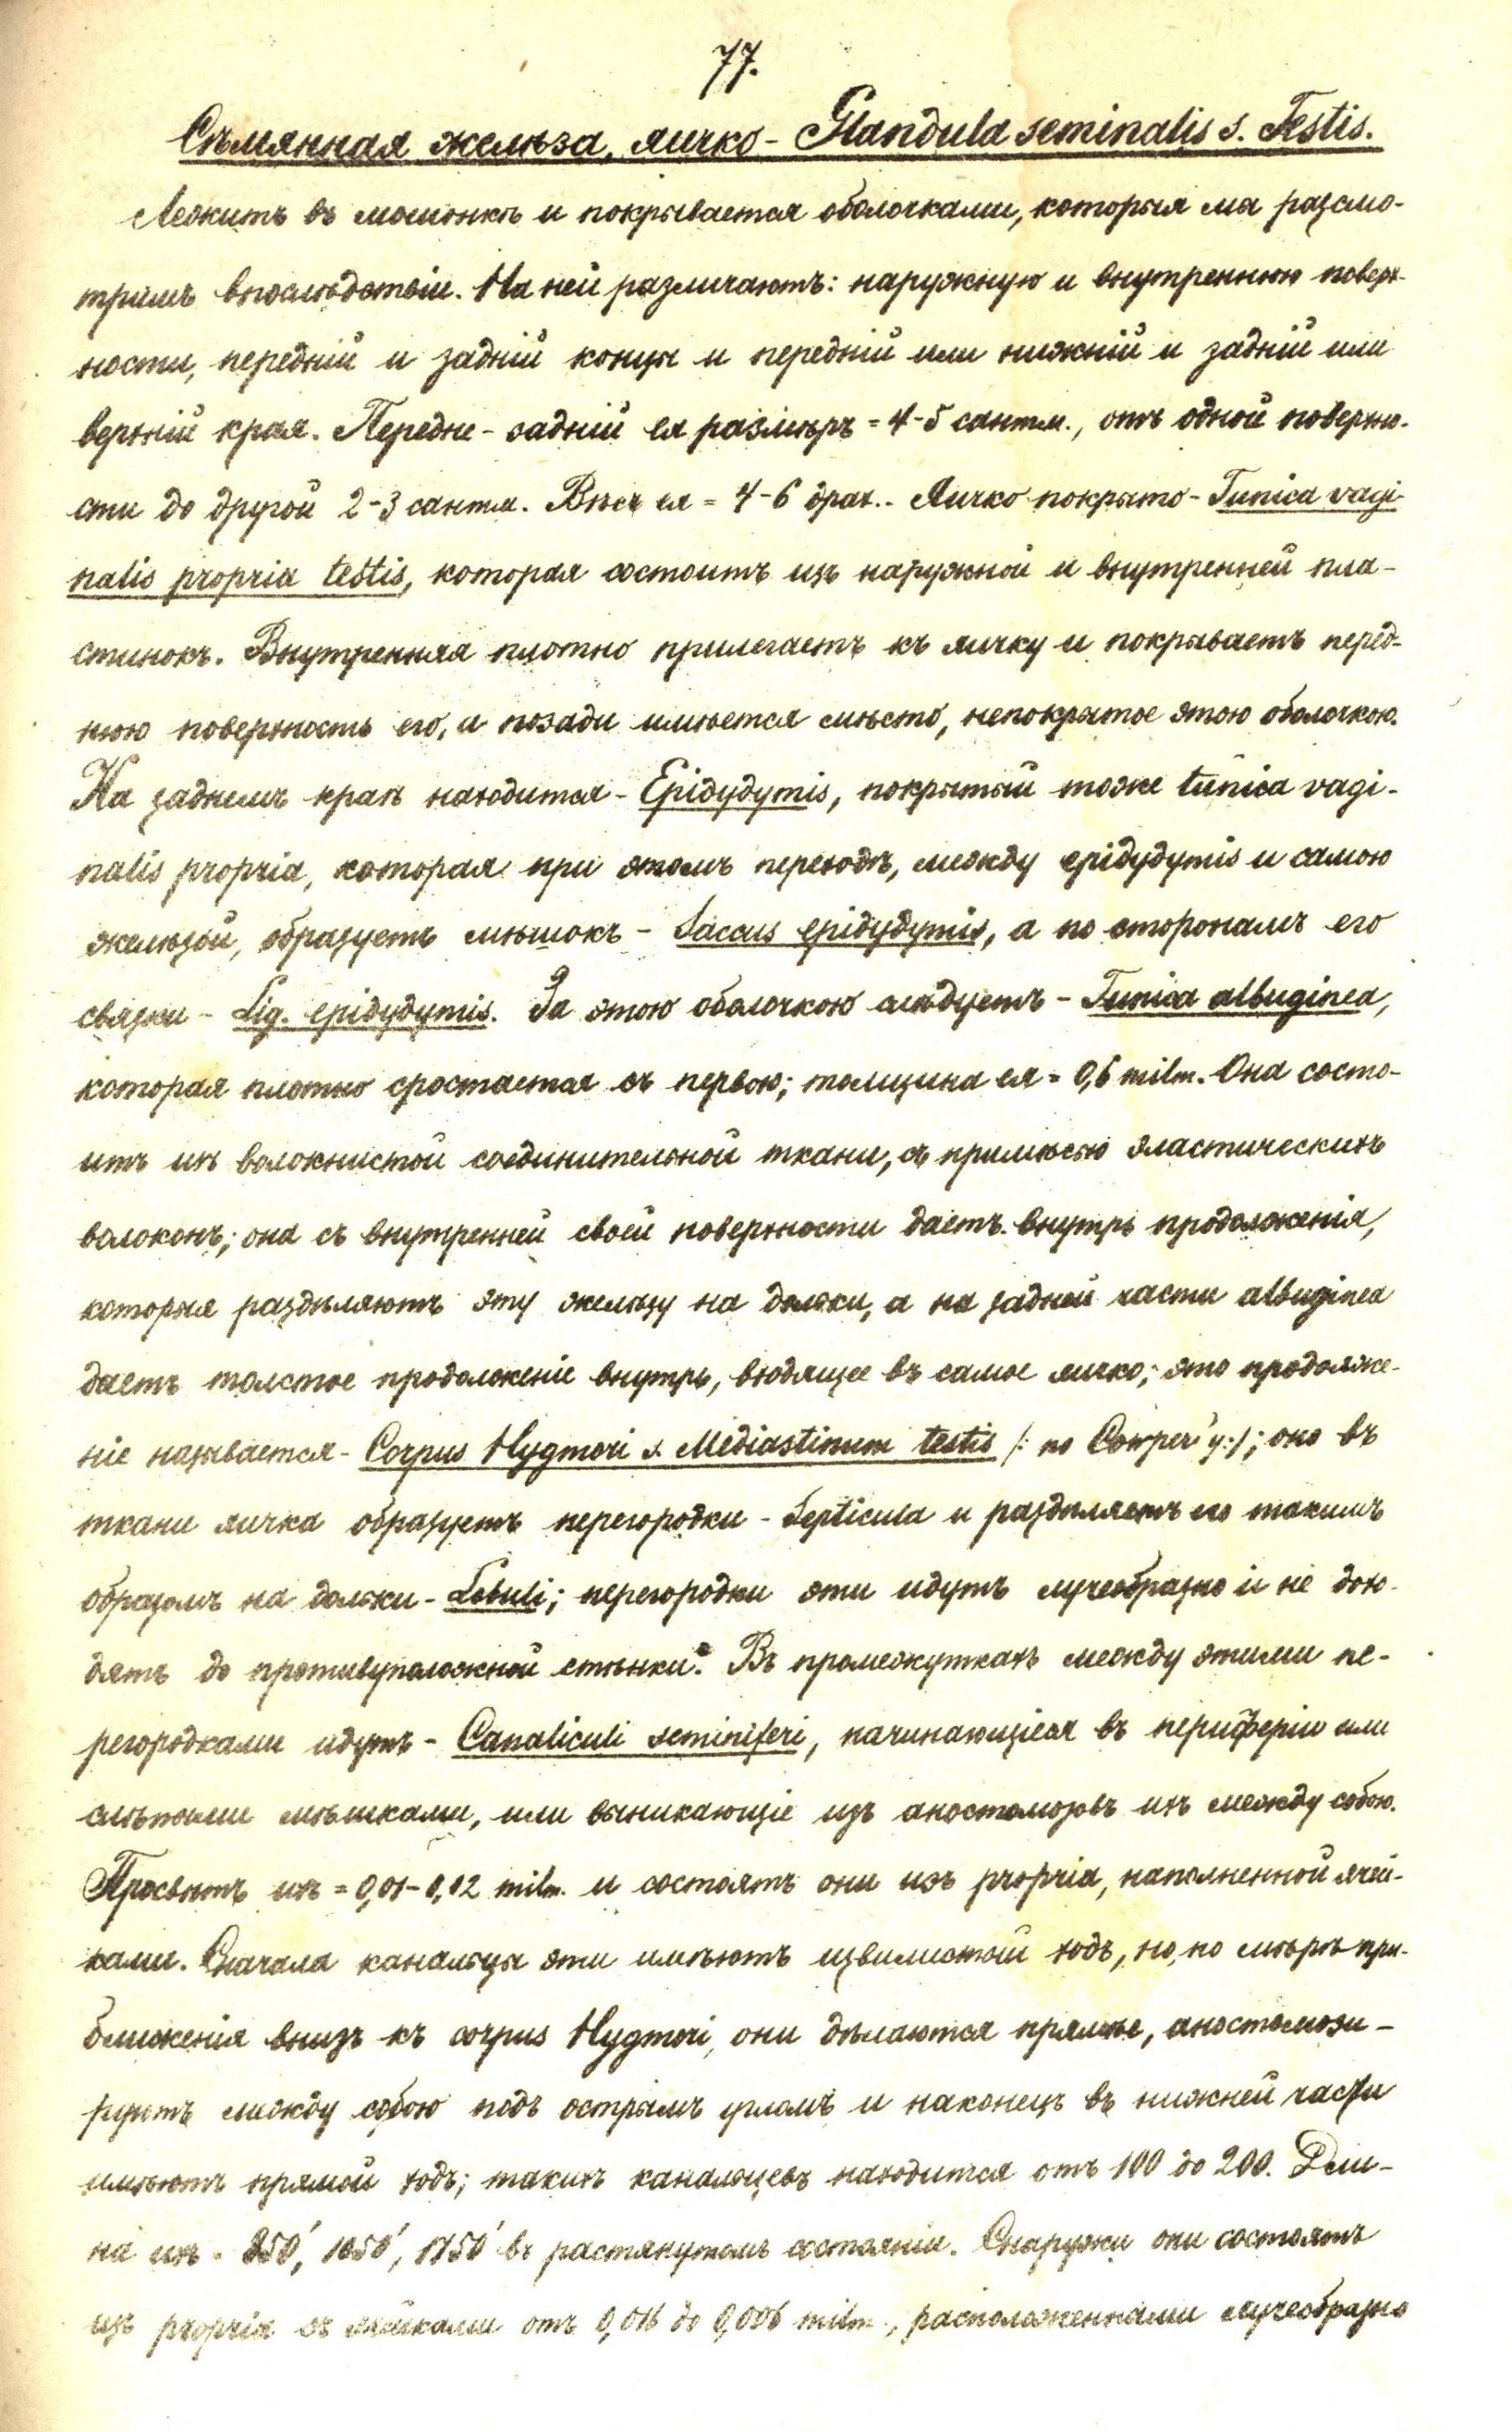 77.
Сѣмянная желѣза, яичко - Glandula seminalis s. Testis.
Лежитъ въ мошонкѣ и покрывается оболочками, которыя мы разсмо-
тримъ впослѣдствіи. На ней различаютъ: наружную и внутреннюю поверх-
ности, передній и задній концы и передній или нижній и задній или
верхній края. Передне-задній ея размѣръ = 4-5 сантм., отъ одной поверхно-
сти до другой 2-3 сантм. Вѣсъ ея = 4-6 драх.. Яичко покрыто - Tunica vagi-
nalis propria testis, которая состоитъ изъ наружной и внутренней пла-
стинокъ. Внутренняя плотно прилегаетъ къ яичку и покрываетъ перед-
нюю поверхность его, и позади имѣется мѣсто, непокрытое этою оболочкою.
На заднемъ краѣ находится - Epidydymis, покрытый тоже tunica vagi-
nalis propria, которая при этомъ переходѣ, между epidydymis и самою
желѣзой, образуетъ мѣшокъ - Saccus epidydymis, а по сторонамъ его
связки - Lig. epidydymis. За этою оболочкою слѣдуетъ - Tunica albuginea,
которая плотно сростается съ первою; толщина ея = 0,6 milm. Она состо-
итъ изъ волокнистой соединительной ткани, съ примѣсью эластическихъ
волоконъ; она съ внутренней своей поверхности даетъ внутрь продолженія,
которыя раздѣляютъ эту желѣзу на дольки, а на задней части albuginea
даетъ толстое продолженіе внутрь, входящее въ самое яичко; это продолже-
ніе называется - Corpus Hygmori s. Mediastinum testis /: по Cowper'у :/; оно въ
ткани яичка образуетъ перегородки - Septicula и раздѣляетъ его такимъ
образомъ на дольки - Lobuli; перегородки эти идутъ лучеобразно и не дохо-
дятъ до противуположной стѣнки. Въ промежуткахъ между этими пе-
регородками идутъ - Canaliculi seminiferi, начинающіеся въ периферіи или
слѣпыми мѣшками, или выникающіе изъ аностомозовъ ихъ между собою.
Просвѣтъ ихъ = 0,01-0,12 milm. и состоятъ они изъ propria, наполненной ячей-
ками. Сначала канальцы эти имѣютъ извилистый ходъ, но, по мѣрѣ при-
ближенія внизъ къ corpus Hygmori, они дѣлаются прямѣе, аностомози-
руютъ между собою подъ острымъ угломъ и наконецъ въ нижней части
имѣютъ прямой ходъ; такихъ канальцевъ находится отъ 100 до 200. Дли-
на ихъ = 850', 1050', 1750' въ растянутомъ состояніи. Снаружи они состоятъ
изъ propria съ ячейками отъ 0,016 до 0,006 milm., расположенными лучеобразно